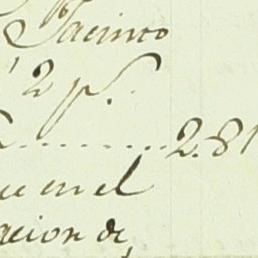 Jacinto
2 p.
2.81
en el
acion de